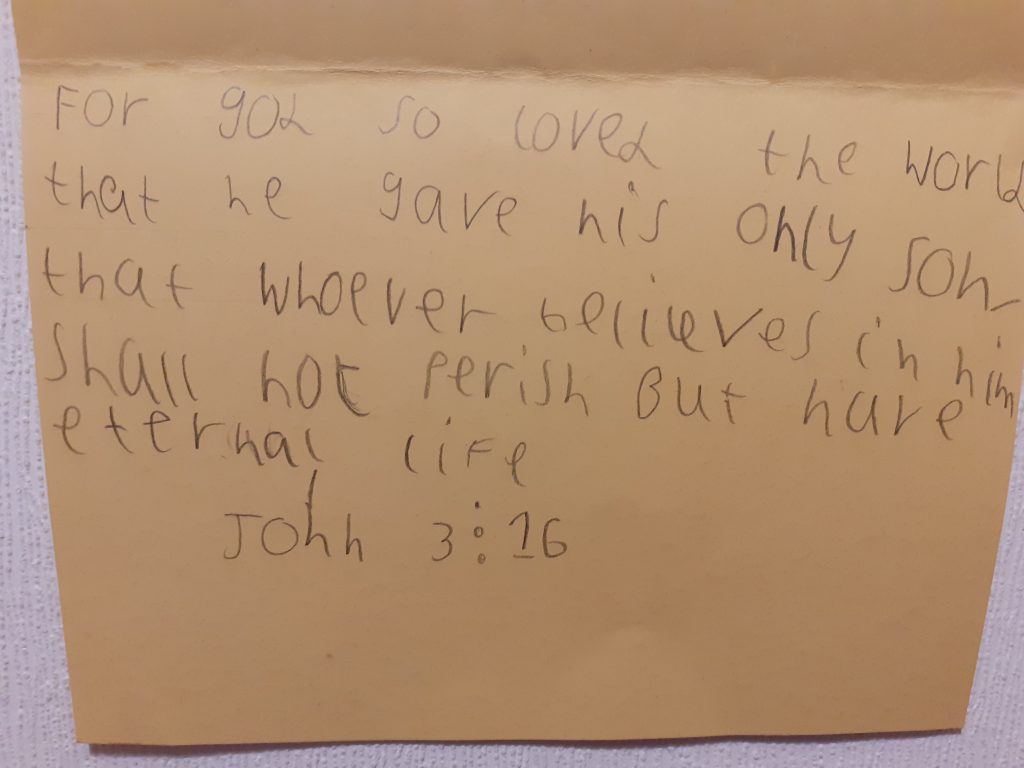 For god so loved the world
that he gave his only son
that whoever believes in him
shall not perish But have
eternal life
John 3:16